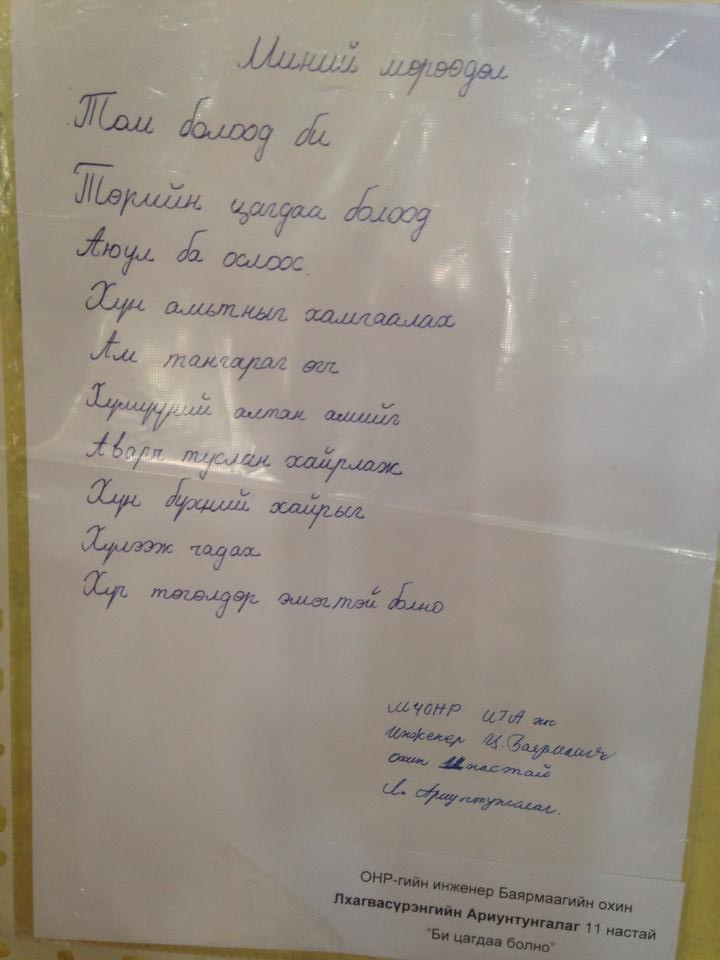 Миний мөрөөдөл
Том болоод би
Төрийн цагдаа болоод
Аюул ба ослоос
Хүн амьтныг хамгаалах
Ам тангараг өгч
Хүмүүний алтан амийг
Аварч туслан хайрлаж
Хүн бүхний хайрыг
Хүлээж чадах
Хүч төгөлдөр эмэгтэй болно
МЧОНР ИТА
Инженер Ц.
охин 11 настай
Л. Ариунтунгалаг.
ОНР-гийн инженер Баярмаагийн охин
Лхагвасүрэнгийн Ариунтунгалаг 11 настай
"Би цагдаа болно"